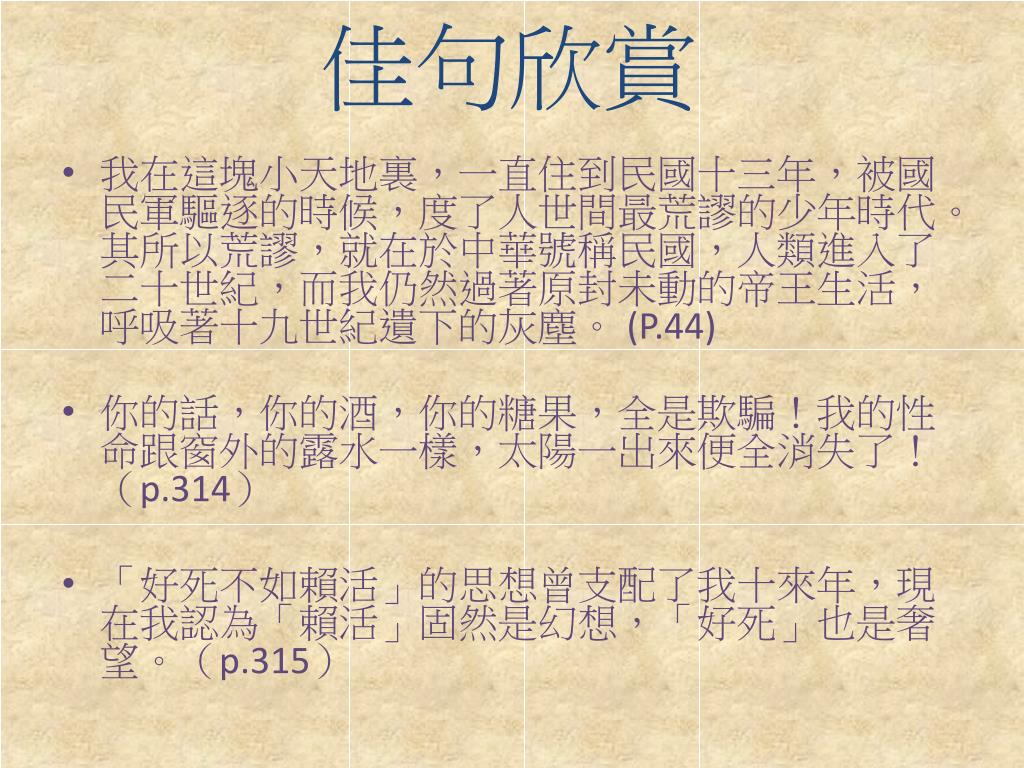 佳句欣賞
• 我在這塊小天地裏，一直住到民國十三年，被國
民軍驅逐的時候，度了人世間最荒謬的少年時代。
其所以荒謬，就在於中華號稱民國，人類進入了
二十世紀，而我仍然過著原封未動的帝王生活，
呼吸著十九世紀遺下的灰塵。 (P.44)
• 你的話，你的酒，你的糖果，全是欺騙！我的性
命跟窗外的露水一樣，太陽一出來便全消失了！
（p.314）
• 「好死不如賴活」的思想曾支配了我十來年，現
在我認為「賴活」固然是幻想，「好死」也是奢
望。（p.315）